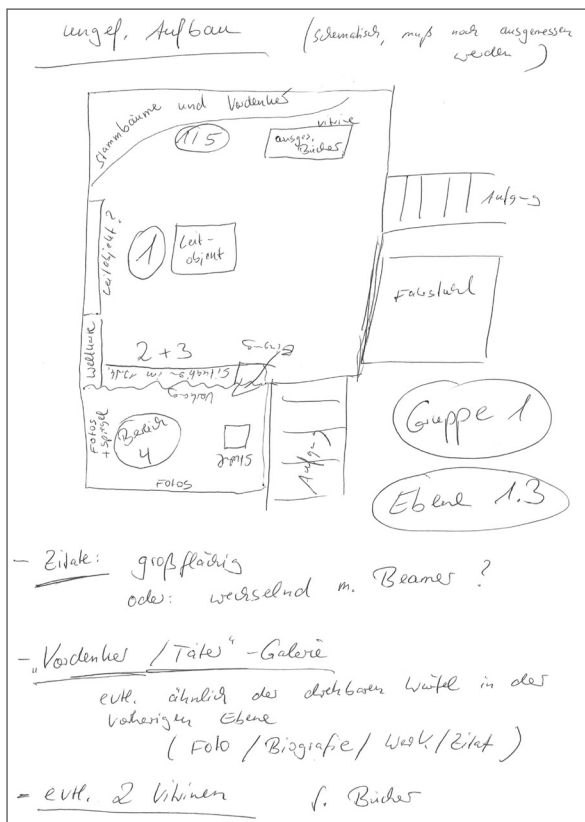 ungef. Aufbau (schematisch, muß noch ausgemessen
werden)
Stammbäume und Vordenker
1/5
Vitrine
ausges.
Bücher
Aufg-g
Leitobjekt?
1
Leit-
objekt
Fahrstuhl
2 + 3
Eing-g
Situation im 19. Jh.
Vorhang
Fotos
+ Spiegel
Bereich
4
Stuhl
Aufg-g
Fotos
Gruppe 1
Ebene 1.3
- Zitate: großflächig
oder: wechselnd m. Beamer?
- „Vordenker / Täter" - Galerie
evtl. ähnlich der drehbaren Würfel in der
vorherigen Ebene
(Foto / Biografie / Werk / Zitat)
- evtl. 2 Vitrinen f. Bücher